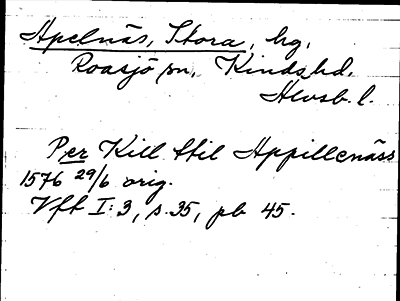 Apelnäs, Stora, hg,
Roasjö sn, Kinds hd,
Älvsb. l.
Per Kill till Appillenäss
1576 29/6 orig.
Vft I:3, s. 35, pb 45.